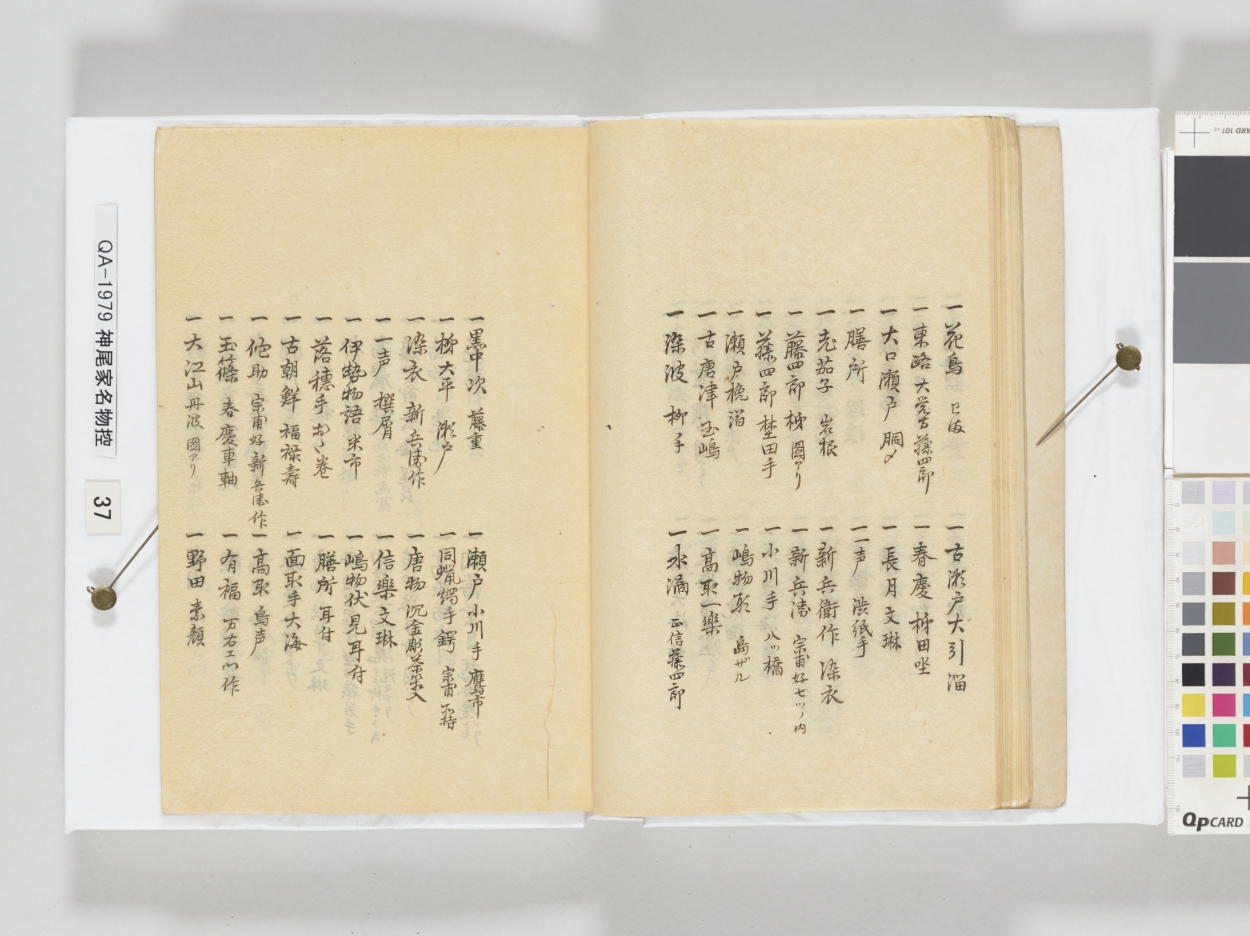 一 花鳥
一 東路 大覚寺 藤四郎
一 大口瀬戸 胴〆
一 膳所
一 茄子 岩根
一 藤四郎 柹 圖アリ
一 藤四郎 埜田手
一 瀬戸桡溜
一 古唐津 嶋
一 染波 柳手
一 古瀬戸大引溜
一 春慶 柹田
一 長月 文琳
一 一声 渋紙手
一 新兵衛作 染衣
一 新兵衛 宗甫好七ツノ内
一 小川手 八ツ橋
一 嶋物 島ザル
一 高取 一楽
一 水滴 正信 藤四郎
一 黒中次 藤重
一 柹 大平 瀬戸
一 染衣 新兵衛作
一 一声 撰屑
一 伊勢物語 米市
一 落穂手 巻
一 古朝鮮 福禄壽
一 佗助 宗甫好 新兵衛作
一 玉篠 春慶車軸
一 大江山 丹波 圖アリ
一 瀬戸 小川手 鷹市
一 同蝋燭手 鍔 宗甫所持
一 唐物 沉金彫
一 信楽 文琳
一 嶋物 伏見 耳付
一 膳所 耳付
一 面取手 大海
一 高取 鳥声
一 有福 万右エ门作
一 野田 素顔
QA-1979 神尾家名物控
37
QpCARD